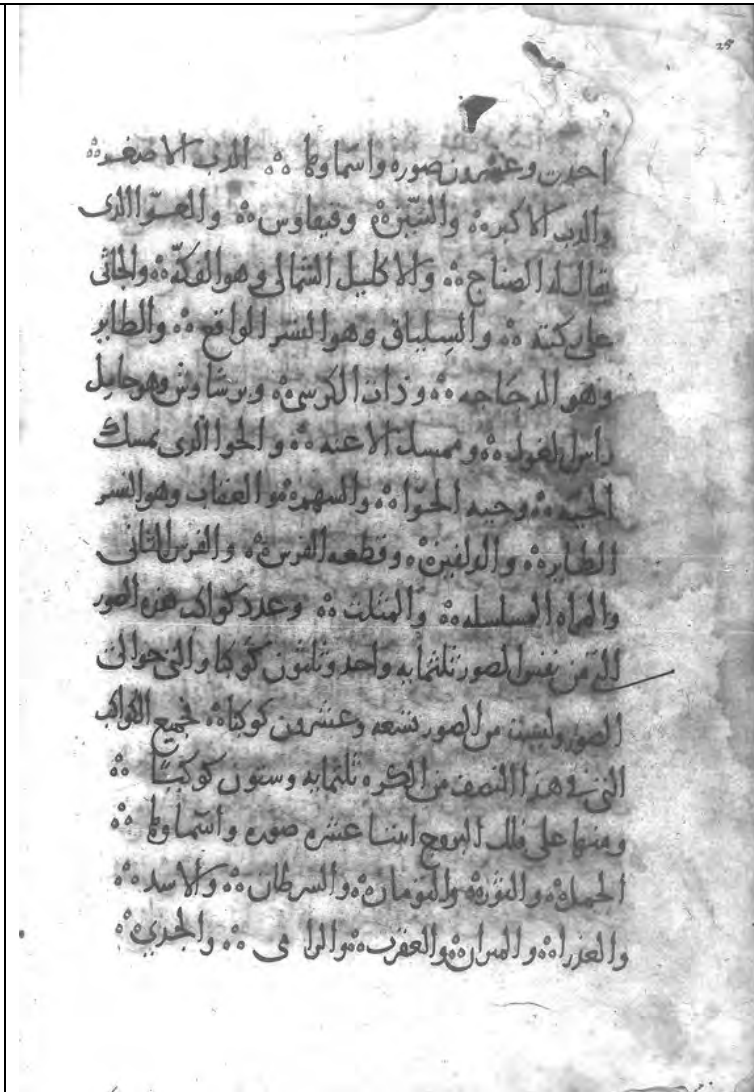 25
احدى وعشرون صوره واسماوها ۞ الدب الاصغر ۞
والدب الاكبر ۞ والتنين ۞ وقيفاوس ۞ والعوا الذى
يقال له الصناج ۞ والاكليل الشمالى وهو الفكّه ۞ والجاثى
على ركبته ۞ والسلياق وهو النسر الواقع ۞ والطاير
وهو الدجاجه ۞ وذات الكرسى ۞ وبرشاوش وهو حامل
راس الغول ۞ وممسك الاعنه ۞ والحوا الذى يمسك
الحيه ۞ وحيه الحوّا ۞ والسهم ۞ والعقاب وهو النسر
الطاير ۞ والدلفين ۞ وقطعه الفرس ۞ والفرس الثانى
والمراه المسلسله ۞ والمثلث ۞ وعدد كواكب هذه الصور
التى من نفس الصور ثلثمايه واحد وثلثون كوكبا والتى حوالى
الصور وليست من الصور تسعه وعشرون كوكبا ۞ فجميع الكواكب
التى فى هذا النصف من الكره ثلثمايه وستون كوكبًا ۞
ومنها على فلك البروج اثنتا عشره صوره واسماوها ۞
الحمل ۞ والثور ۞ والتومان ۞ والسرطان ۞ والاسد ۞
والعذرا ۞ والميزان ۞ والعقرب ۞ والرامى ۞ والجدي ۞